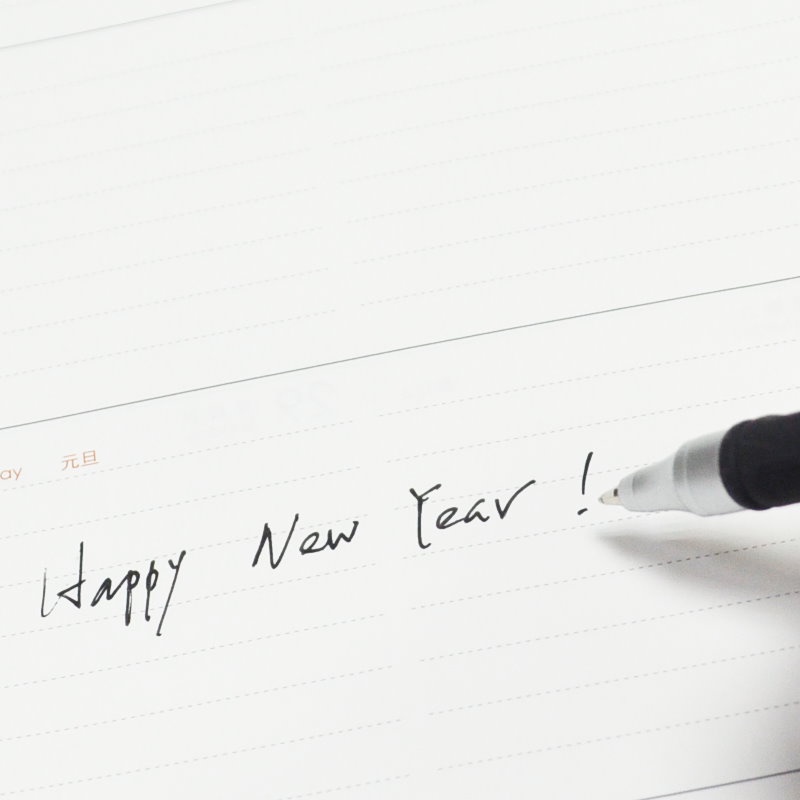 ay 元旦
Happy New Year !